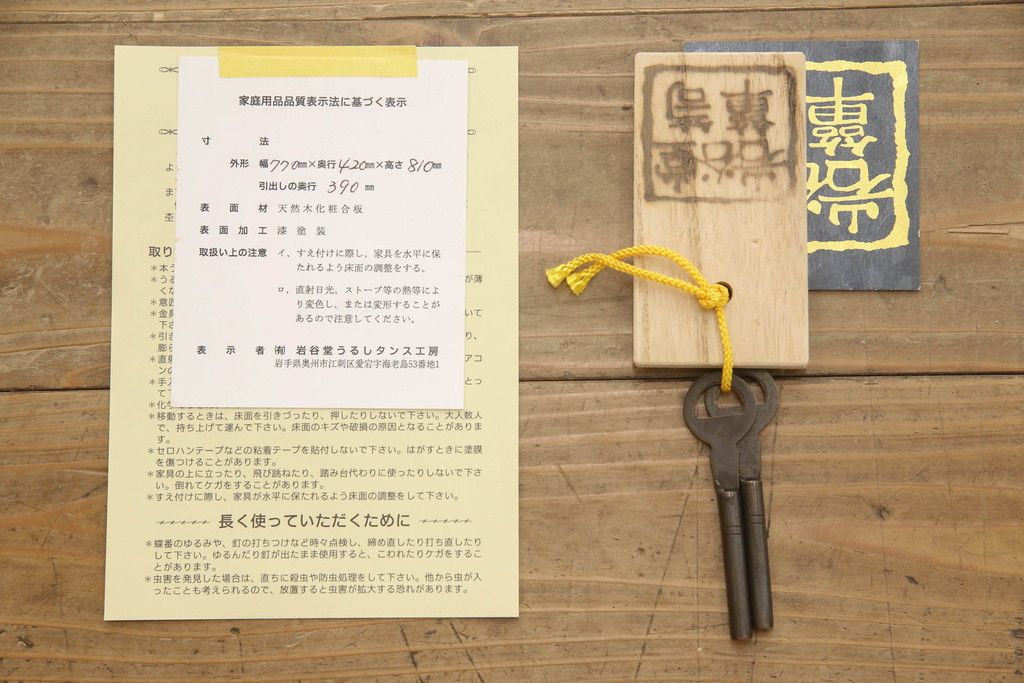 家庭用品品質表示法に基づく表示
寸法
外形 幅770㎜×奥行420㎜×高さ810㎜
引出しの奥行 390 ㎜
表面材 天然木化粧合板
表面加工 漆塗装
取扱い上の注意 イ、すえ付けに際し、家具を水平に保
たれるよう床面の調整をする。
ロ、直射日光、ストーブ等の熱等によ
り変色し、または変形することが
あるので注意してください。
表示者 ㈲ 岩谷堂うるしタンス工房
岩手県奥州市江刺区愛宕字海老島53番地1
よ
ま
杢
取り
＊本
＊うる
が薄
くな
＊意図
＊金具
いて
下さ
＊引き
り、
膨ら
＊直射
アコ
ンの
＊手入
とっ
て下
＊化
＊移動するときは、床面を引きづったり、押したりしないで下さい。大人数人
で、持ち上げて運んで下さい。床面のキズや破損の原因となることがありま
す。
＊セロハンテープなどの粘着テープを貼付しないで下さい。はがすときに塗膜
を傷つけることがあります。
＊家具の上に立ったり、飛び跳ねたり、踏み台代わりに使ったりしないで下さ
い。倒れてケガをすることがあります。
＊すえ付けに際し、家具が水平に保たれるよう床面の調整をして下さい。
長く使っていただくために
＊蝶番のゆるみや、釘の打ちつけなど時々点検し、締め直したり打ち直したり
して下さい。ゆるんだり釘が出たまま使用すると、こわれたりケガをするこ
とがあります。
＊虫害を発見した場合は、直ちに殺虫や防虫処理をして下さい。他から虫が入
ったことも考えられるので、放置すると虫害が拡大する恐れがあります。